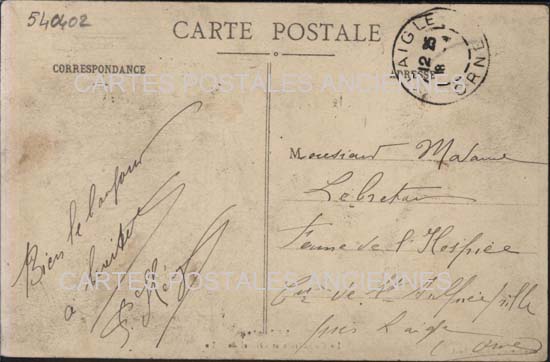 540402
CARTE POSTALE
CORRESPONDANCE
ADRESSE
L'AIGLE
12 35
18 -4
ORNE
CARTES POSTALES ANCIENNES
Bien le bonjour
à
Monsieur Madame
Lebreton
Ferme de l'Hospice
de St Sulpice s/ rille
près Laigle
Orne
CARTES POSTALES ANCIENNES